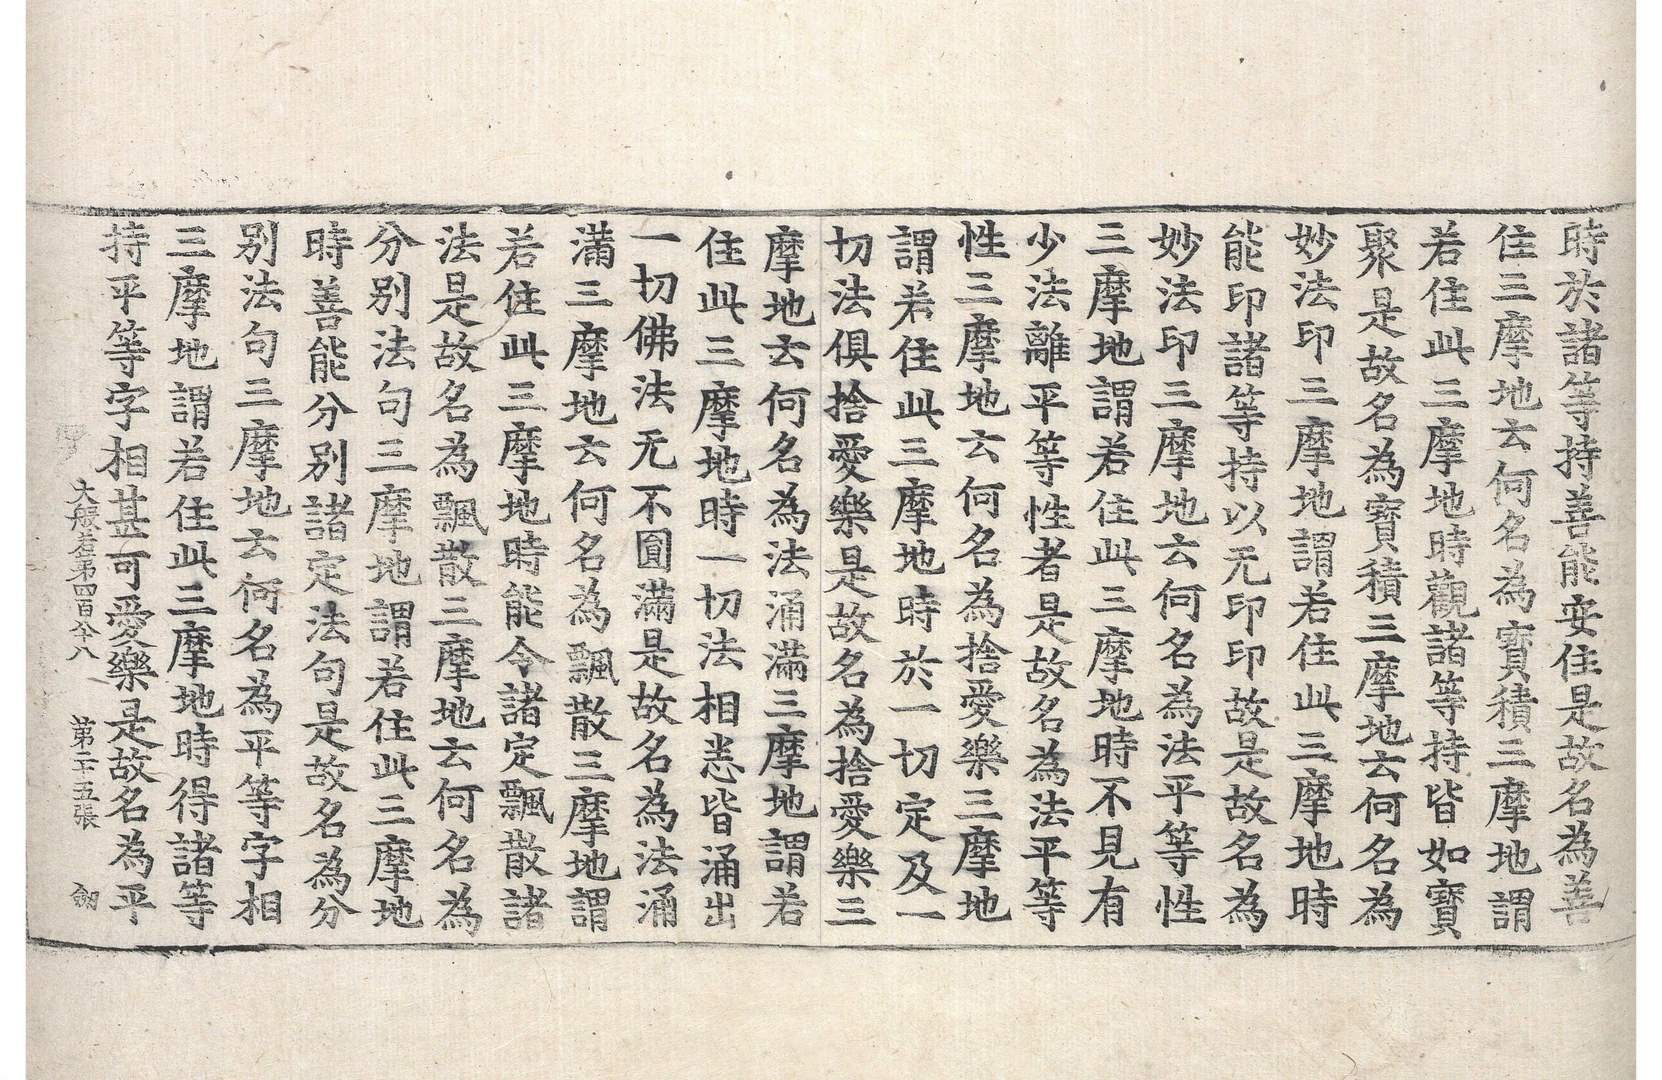 時於諸等持善能安住是故名為善
住三摩地云何名為寶積三摩地謂
若住此三摩地時觀諸等持皆如寶
聚是故名為寶積三摩地云何名為
妙法印三摩地謂若住此三摩地時
能印諸等持以无印印故是故名為
妙法印三摩地云何名為法平等性
三摩地謂若住此三摩地時不見有
少法離平等性者是故名為法平等
性三摩地云何名為捨愛樂三摩地
謂若住此三摩地時於一切定及一
切法俱捨愛樂是故名為捨愛樂三
摩地云何名為法涌滿三摩地謂若
住此三摩地時一切法相悉皆涌出
一切佛法无不圓滿是故名為法涌
滿三摩地云何名為飄散三摩地謂
若住此三摩地時能令諸定飄散諸
法是故名為飄散三摩地云何名為
分別法句三摩地謂若住此三摩地
時善能分別諸定法句是故名為分
別法句三摩地云何名為平等字相
三摩地謂若住此三摩地時得諸等
持平等字相甚可愛樂是故名為平
大般若第四百八十八 第二十五張 劒